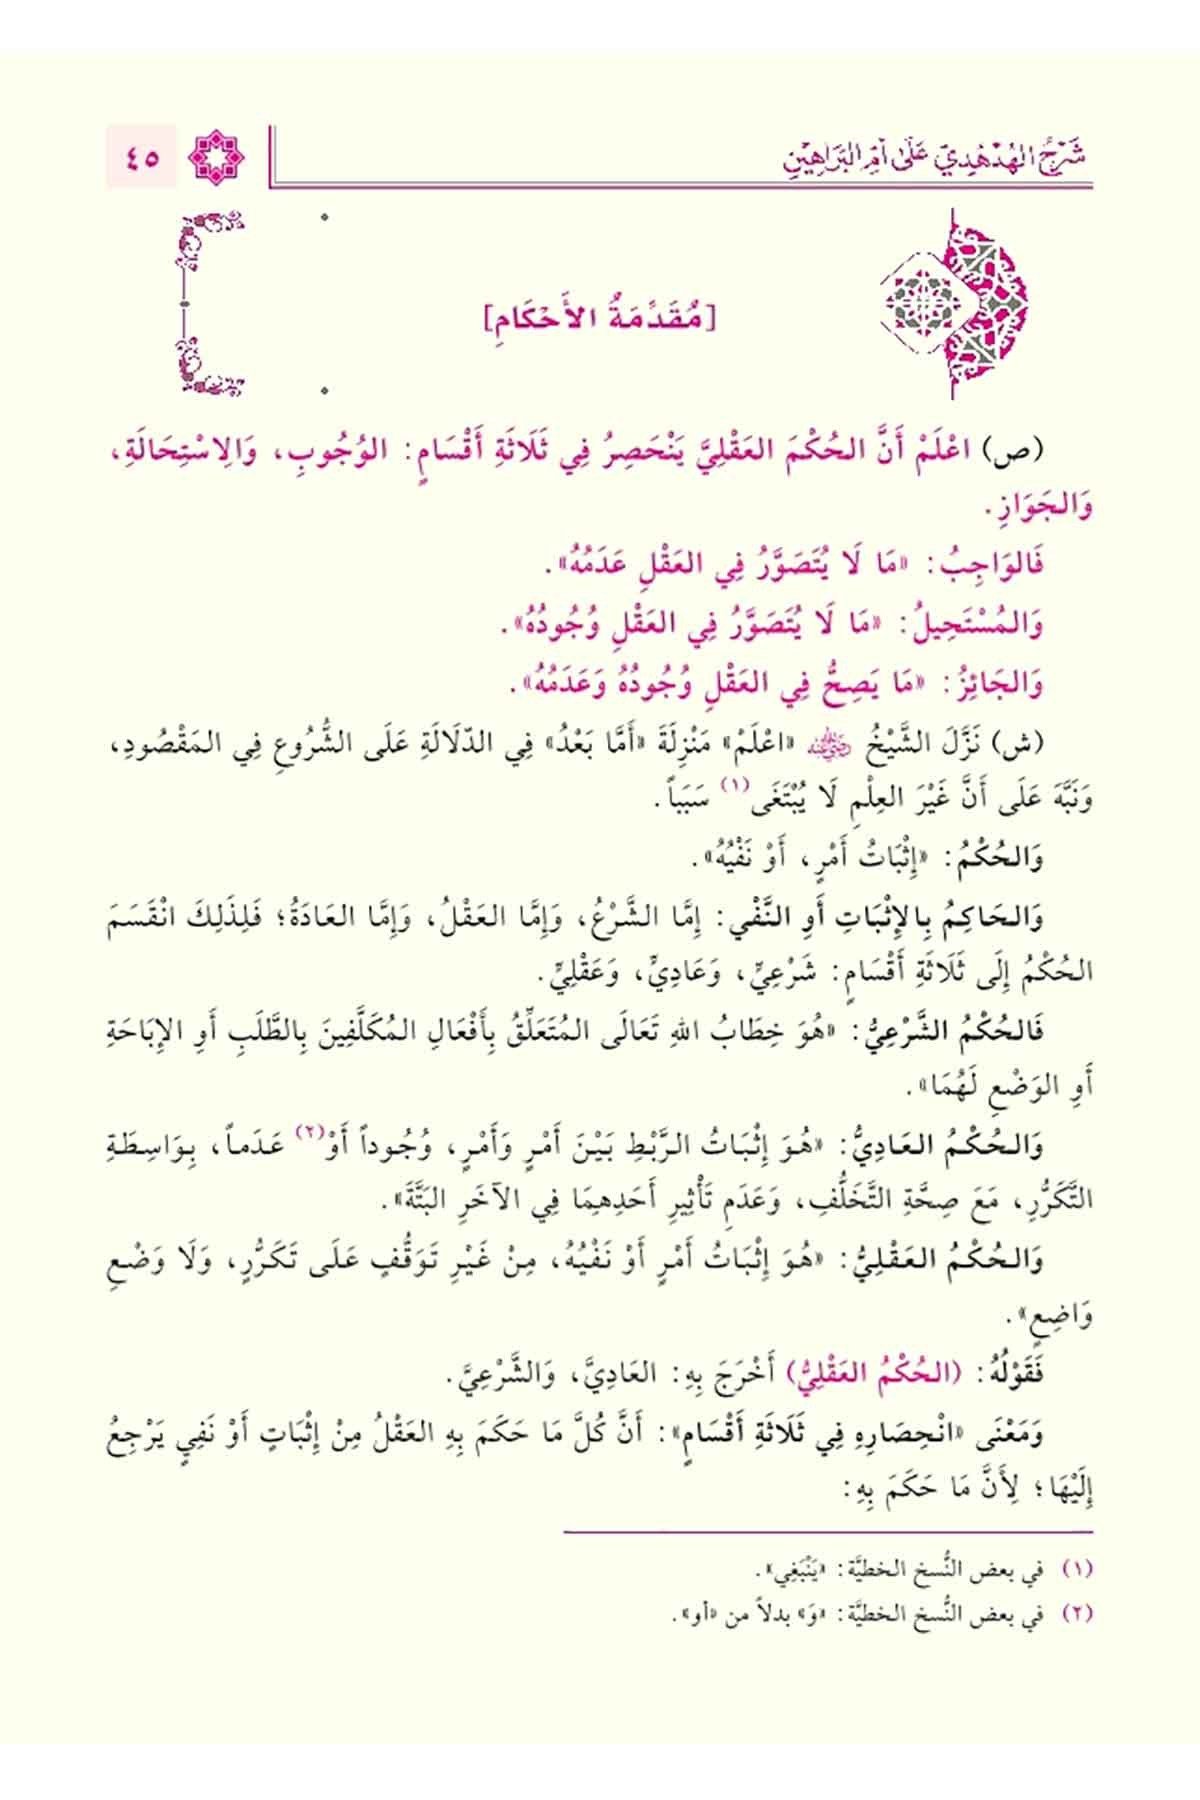 شَرْحُ الهُدْهُدِيِّ عَلَى أُمِّ البَرَاهِينِ
٤٥
[مُقَدِّمَةُ الأَحْكَامِ]
(ص) اعْلَمْ أَنَّ الحُكْمَ العَقْلِيَّ يَنْحَصِرُ فِي ثَلَاثَةِ أَقْسَامٍ: الوُجُوبِ، وَالِاسْتِحَالَةِ،
وَالجَوَازِ.
فَالوَاجِبُ: «مَا لَا يُتَصَوَّرُ فِي العَقْلِ عَدَمُهُ».
وَالمُسْتَحِيلُ: «مَا لَا يُتَصَوَّرُ فِي العَقْلِ وُجُودُهُ».
وَالجَائِزُ: «مَا يَصِحُّ فِي العَقْلِ وُجُودُهُ وَعَدَمُهُ».
(ش) نَزَّلَ الشَّيْخُ رضي الله عنه «اعْلَمْ» مَنْزِلَةَ «أَمَّا بَعْدُ» فِي الدّلَالَةِ عَلَى الشُّرُوعِ فِي المَقْصُودِ،
وَنَبَّهَ عَلَى أَنَّ غَيْرَ العِلْمِ لَا يُبْتَغَى(١) سَبَباً.
وَالحُكْمُ: «إِثْبَاتُ أَمْرٍ، أَوْ نَفْيُهُ».
وَالحَاكِمُ بِالإِثْبَاتِ أَوِ النَّفْي: إِمَّا الشَّرْعُ، وَإِمَّا العَقْلُ، وَإِمَّا العَادَةُ؛ فَلِذَلِكَ انْقَسَمَ
الحُكْمُ إِلَى ثَلَاثَةِ أَقْسَامٍ: شَرْعِيٍّ، وَعَادِيٍّ، وَعَقْلِيٍّ.
فَالحُكْمُ الشَّرْعِيُّ: «هُوَ خِطَابُ اللهِ تَعَالَى المُتَعَلِّقُ بِأَفْعَالِ المُكَلَّفِينَ بِالطَّلَبِ أَوِ الإِبَاحَةِ
أَوِ الوَضْعِ لَهُمَا».
وَالحُكْمُ العَادِيُّ: «هُوَ إِثْبَاتُ الرَّبْطِ بَيْنَ أَمْرٍ وَأَمْرٍ، وُجُوداً أَوْ(٢) عَدَماً، بِوَاسِطَةِ
التَّكَرُّرِ، مَعَ صِحَّةِ التَّخَلُّفِ، وَعَدَمِ تَأْثِيرِ أَحَدِهِمَا فِي الآخَرِ البَتَّةَ».
وَالحُكْمُ العَقْلِيُّ: «هُوَ إِثْبَاتُ أَمْرٍ أَوْ نَفْيُهُ، مِنْ غَيْرِ تَوَقُّفٍ عَلَى تَكَرُّرٍ، وَلَا وَضْعِ
وَاضِعٍ».
فَقَوْلُهُ: (الحُكْمُ العَقْلِيُّ) أَخْرَجَ بِهِ: العَادِيَّ، وَالشَّرْعِيَّ.
وَمَعْنَى «انْحِصَارِهِ فِي ثَلَاثَةِ أَقْسَامٍ»: أَنَّ كُلَّ مَا حَكَمَ بِهِ العَقْلُ مِنْ إِثْبَاتٍ أَوْ نَفِي يَرْجِعُ
إِلَيْهَا؛ لِأَنَّ مَا حَكَمَ بِهِ:
(١) في بعض النُّسخ الخطيَّة: «يَنْبَغِي».
(٢) في بعض النُّسخ الخطيَّة: «وَ» بدلاً من «أو».